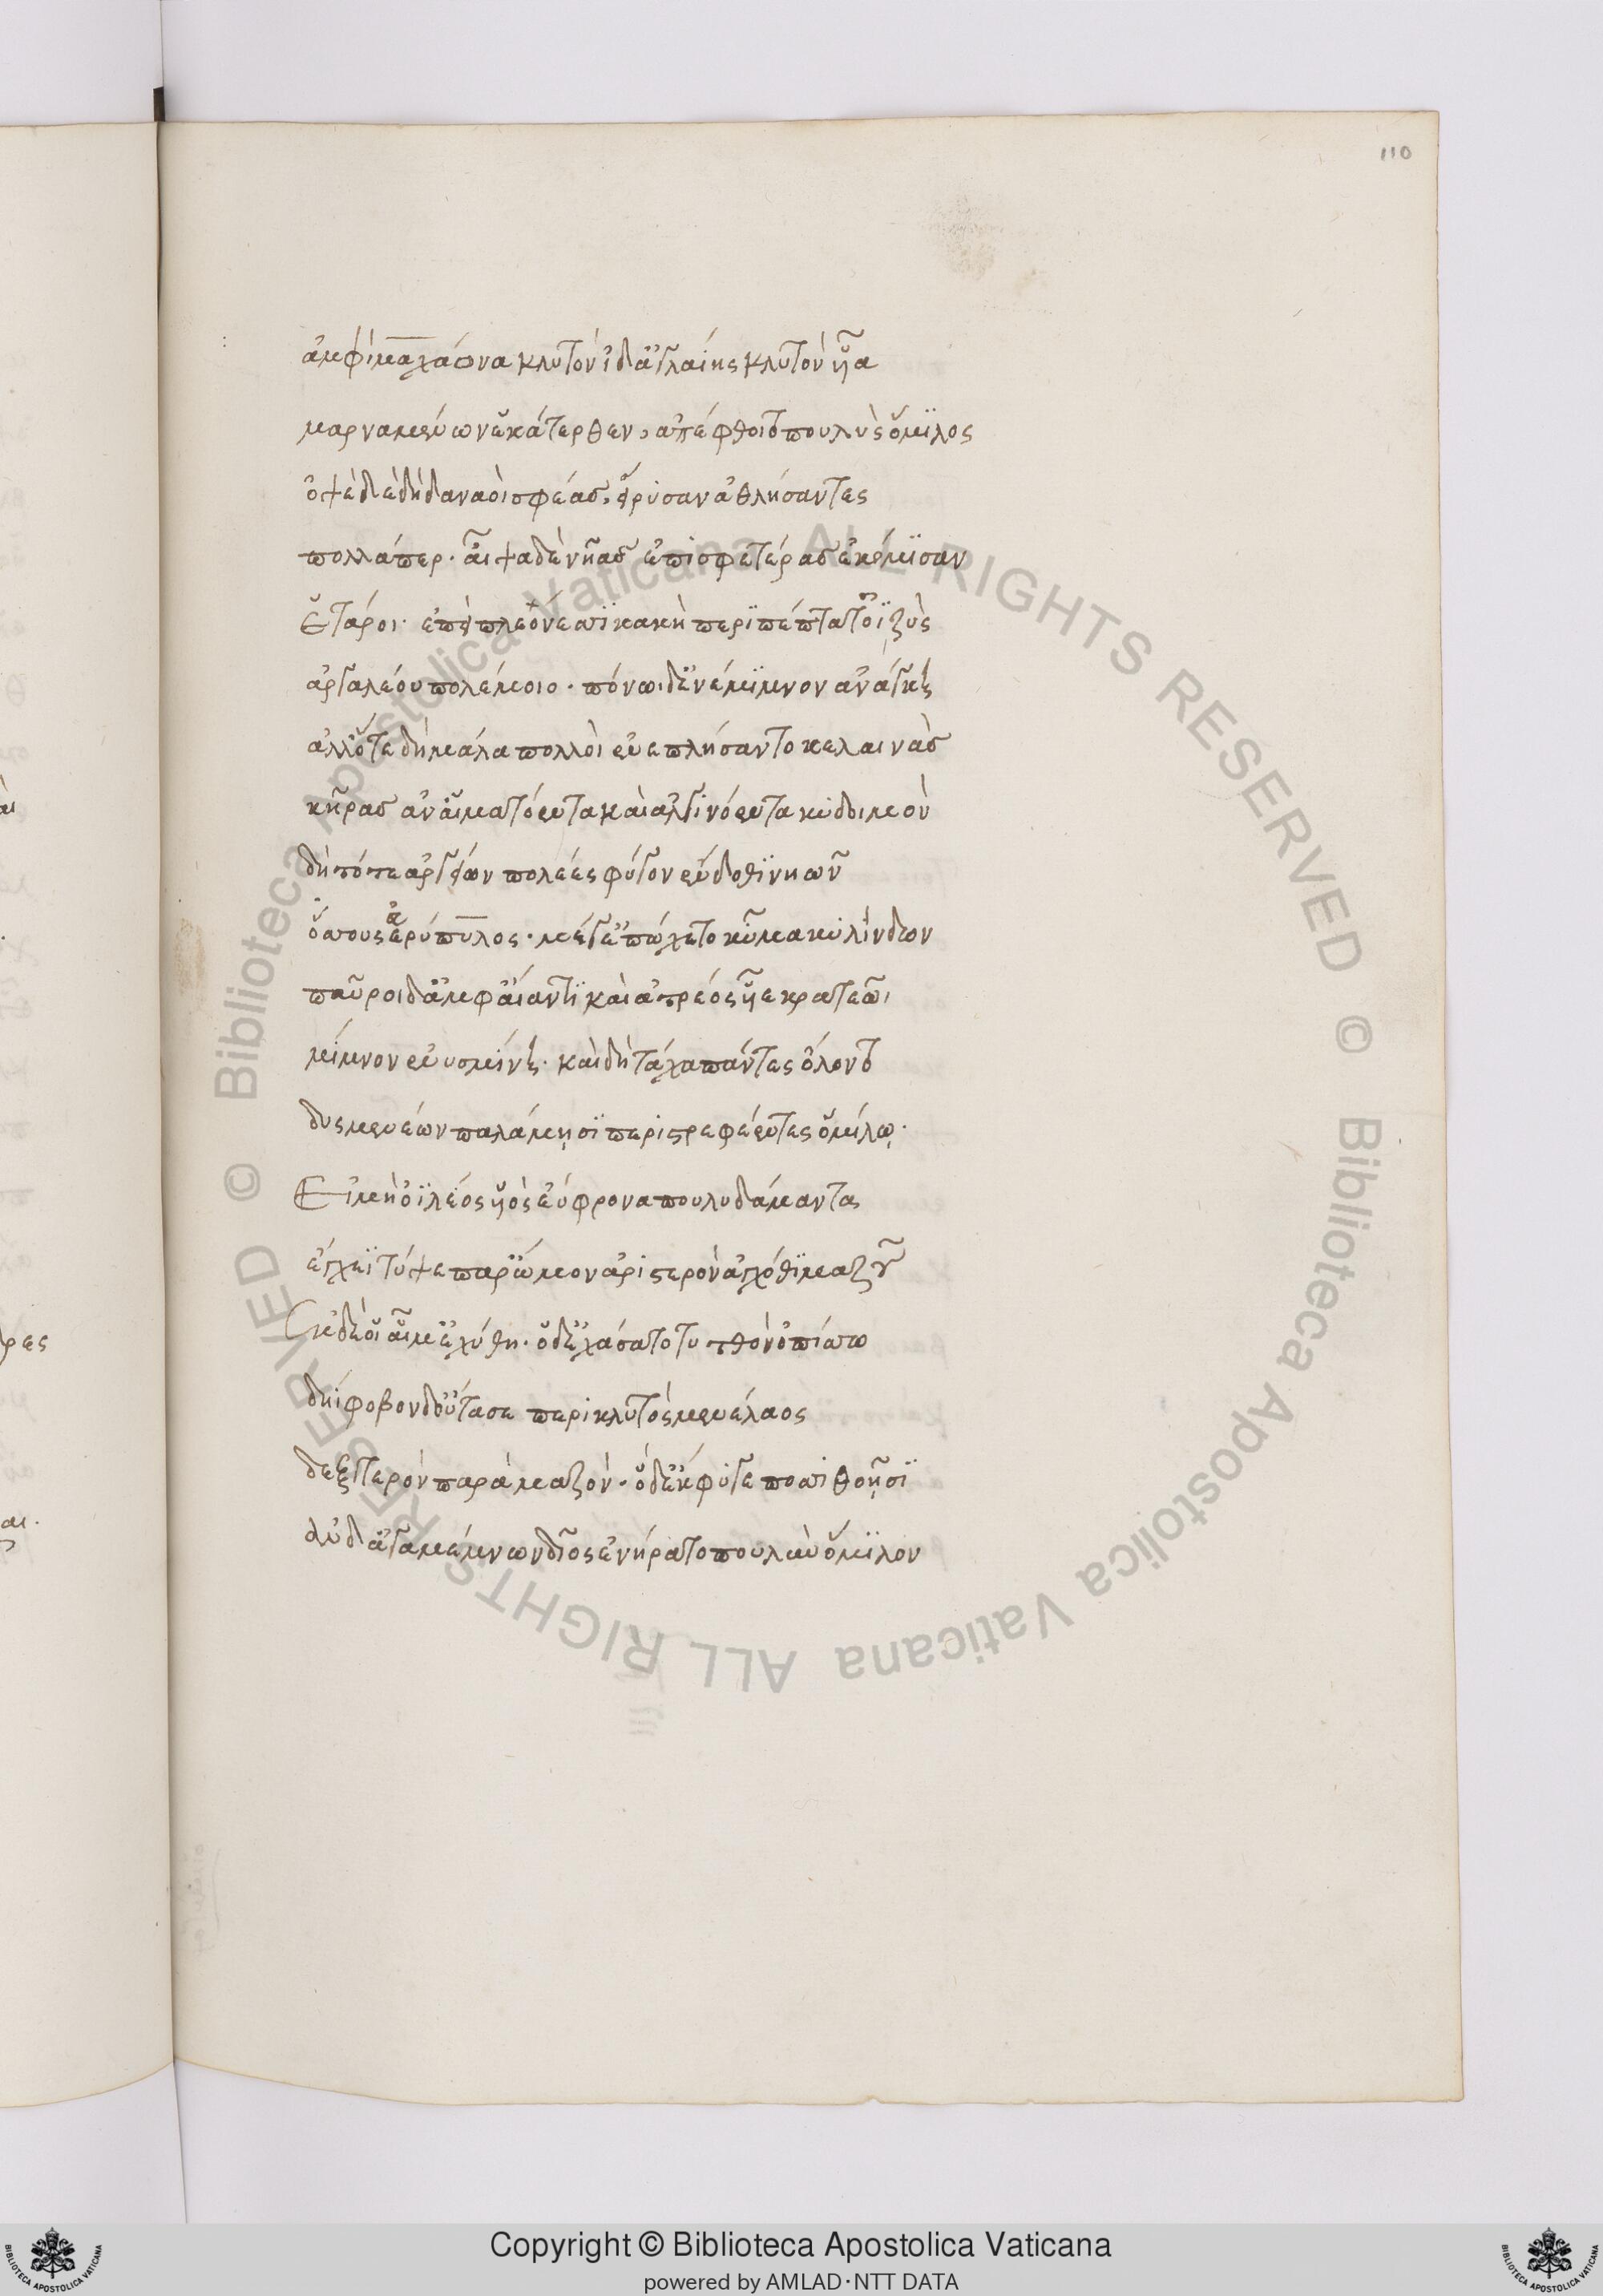 110
ἀμφὶ μαχάονα κλυτὸν ἰδ' ἀγλαΐης κλυτὸν υἷα
μαρναμένων ἑκάτερθεν, ἀπέφθιτο πουλὺς ὅμιλος
ὀψὲ δὲ δὴ δαναοὶ σφέας, εἴρυσαν ἀθλήσαντες
πολλάπερ. αἶψα δὲ νῆας ἐπὶ σφετέρας ἐκόμισαν
ἑτάροι. ἐπεὶ πλεόνεσσι κακὴ περιπέπτατ' ὀϊζὺς
ἀργαλέου πολέμοιο. πόνωι δ' ἐνέμιμνον ἀνάγκῃ
ἀλλ' ὅτε δὴ μάλα πολλοὶ ἐνεπλήσαντο κελαινὰς
κῆρας ἀν' αἱματόεντα καὶ ἀλγινόεντα κυδοιμὸν
δὴ τότε ἀργείων πολέες φύγον ἔνδοθι νηῶν
ὅσσους εὐρύπυλος. μέγ' ἐπώχετο κῦμα κυλίνδων
παῦροι δ' ἀμφ' αἴαντι καὶ ἀτρέος υἷε κραταιῶι
μίμνον ἐν ὑσμίνῃ. καὶ δὴ τάχα πάντες ὄλοντο
δυσμενέων παλάμῃσι περιστρεφέντες ὁμίλῳ.
Εἰ μὴ ὀϊλέος υἱὸς ἐΰφρονα πουλυδάμαντα
ἔγχεϊ τύψε παρ' ὦμον ἀριστερὸν ἀγχόθι μαζοῦ
ἐκ δέ οἱ αἷμ' ἐχύθη. ὁ δ' ἐχάσατο τυτθὸν ὀπίσσω
δηίφοβον δ' οὔτασε περικλυτὸς μενέλαος
δεξιτερὸν παρὰ μαζόν. ὁ δ' ἔκφυγε ποσὶ θοῇσι
ἀλλ' ἀγαμέμνων δῖος ἐνήρατο πουλὺν ὅμιλον
Copyright © Biblioteca Apostolica Vaticana
powered by AMLAD·NTT DATA